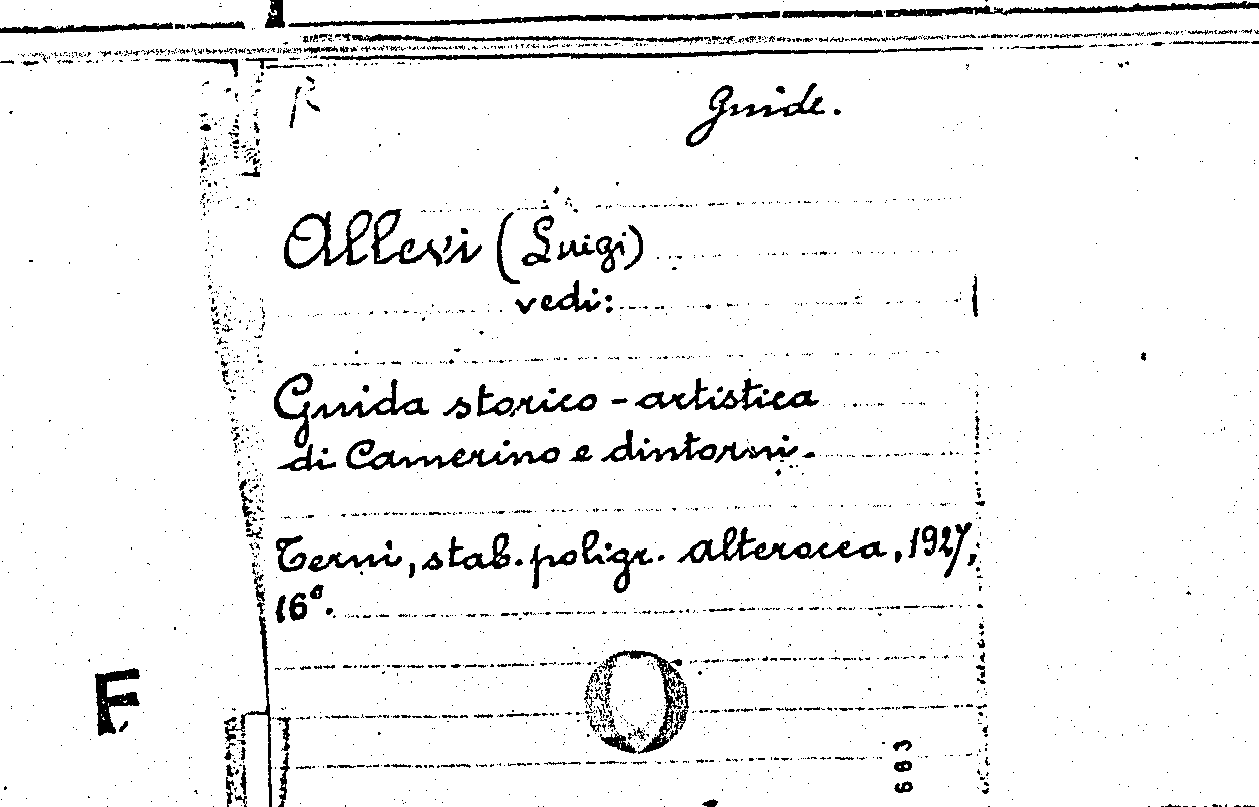 R
Guide.
Allevi (Luigi)
vedi:
Guida storico-artistica
di Camerino e dintorni.
Terni, stab. poligr. Alterocca, 1927,
16°.
F